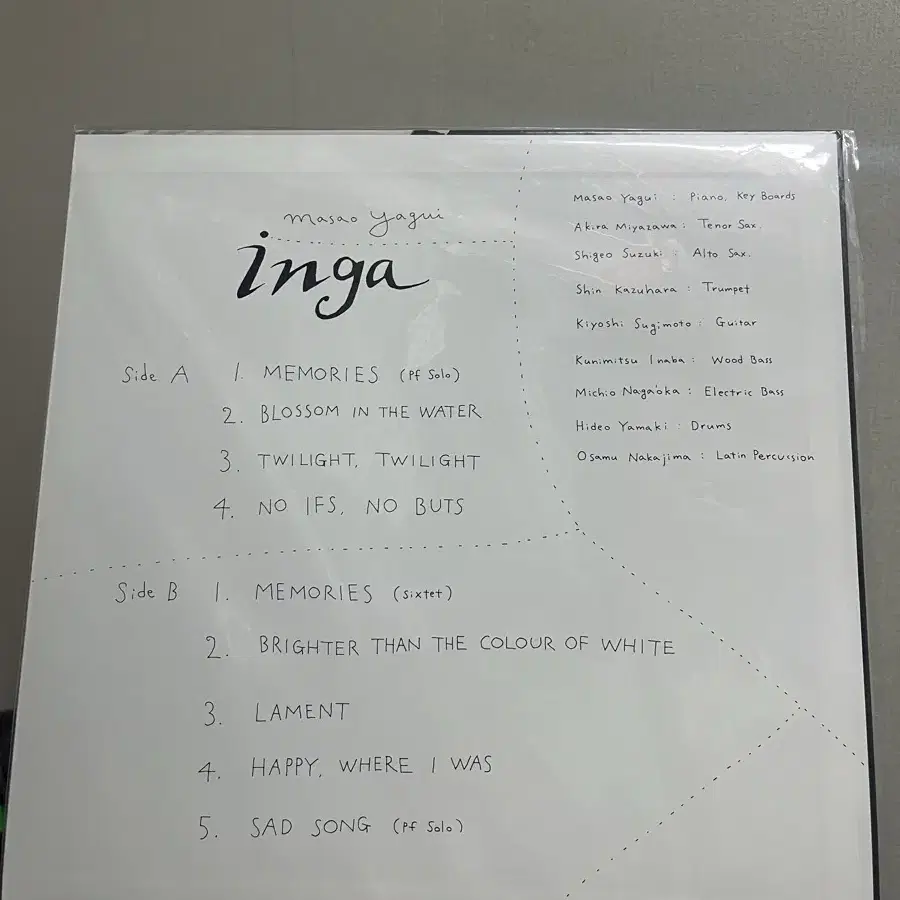 masao yagui
inga
Side A 1. MEMORIES (Pf Solo)
2. BLOSSOM IN THE WATER
3. TWILIGHT, TWILIGHT
4. NO IFS, NO BUTS
Side B 1. MEMORIES (Sixtet)
2. BRIGHTER THAN THE COLOUR OF WHITE
3. LAMENT
4. HAPPY, WHERE I WAS
5. SAD SONG (Pf Solo)
Masao Yagui : Piano, Key Boards
Akira Miyazawa : Tenor Sax.
Shigeo Suzuki : Alto Sax.
Shin Kazuhara : Trumpet
Kiyoshi Sugimoto : Guitar
Kunimitsu Inaba : Wood Bass
Michio Nagaoka : Electric Bass
Hideo Yamaki : Drums
Osamu Nakajima : Latin Percussion